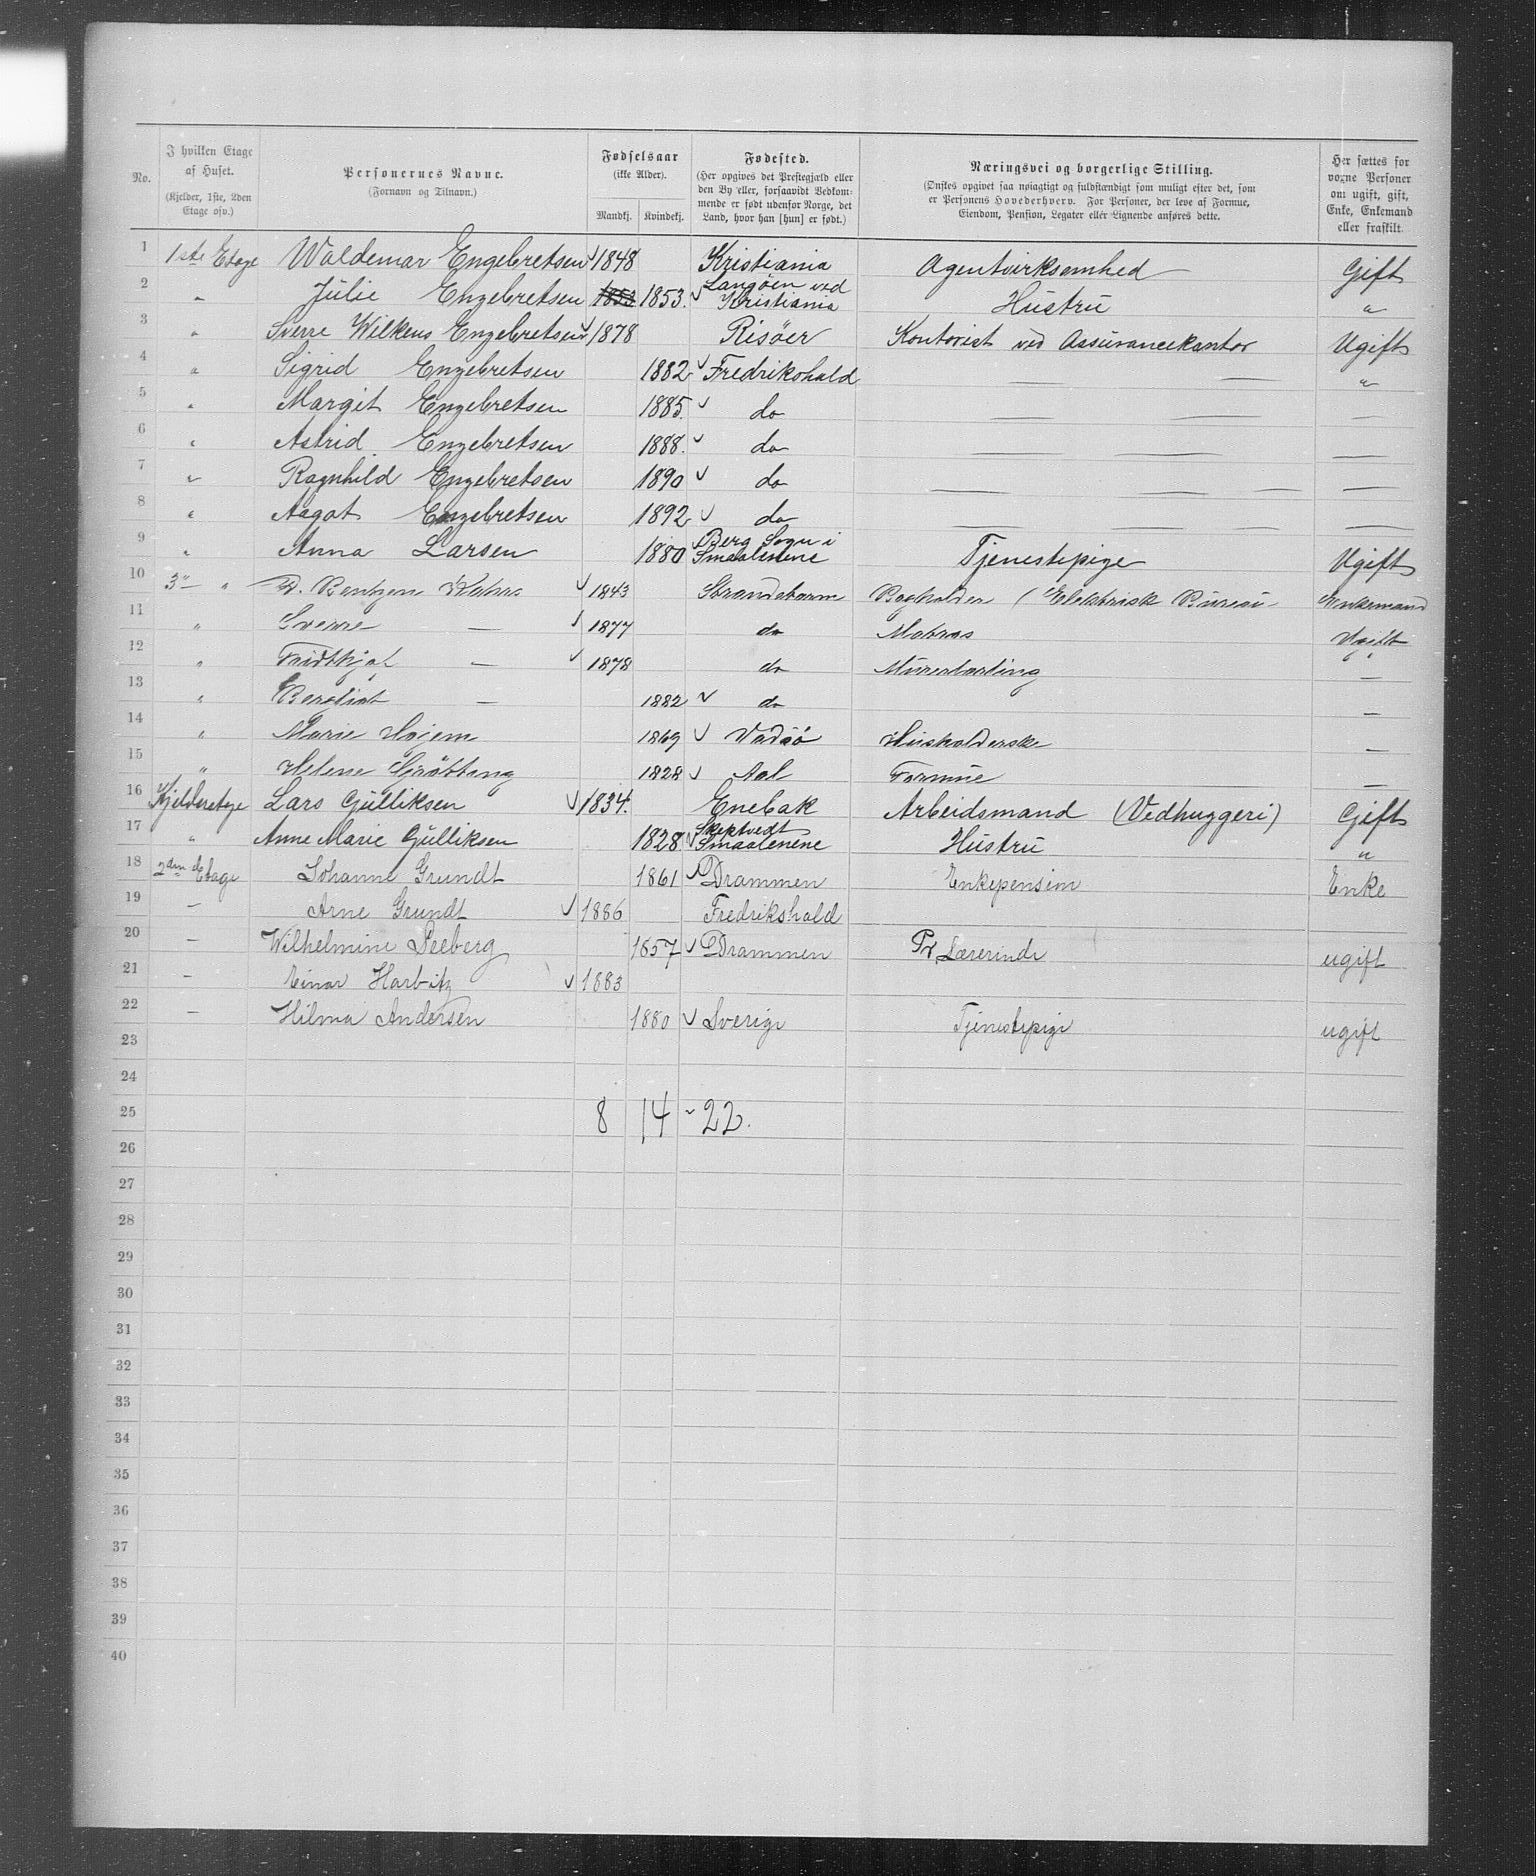 No.
I hvilken Etage af Huset. (Kjelder, 1ste, 2den Etage osv.)
Personernes Navne. (Fornavn og Tilnavn.)
Fødselsaar (ikke Alder). Mandkj. Kvindekj.
Fødested. (Her opgives det Prestegjæld eller den By eller, forsaavidt Vedkommende er født udenfor Norge, det Land, hvor han [hun] er født.)
Næringsvei og borgerlige Stilling. (Ønskes opgivet saa nøiagtigt og fuldstændigt som muligt efter det, som er Personens Hovederhverv. For Personer, der leve af Formue, Eiendom, Pension, Legater eller Lignende anføres dette.
Her sættes for voxne Personer om ugift, gift, Enke, Enkemand eller fraskilt.
1 1ste Etage Waldemar Engebretsen 1848 Kristiania Agentvirksomhed Gift
2 " Julie Engebretsen 1853 1853. Langöen ved Kristiania Hustru "
3 " Sverre Wilkens Engebretsen 1878 Risöer Kontorist ved Assurancekontor Ugift
4 " Sigrid Engebretsen 1882 Fredrikshald — — "
5 " Margit Engebretsen 1885. do — —
6 " Astrid Engebretsen 1888. do — — —
7 " Ragnhild Engebretsen 1890 do — — — —
8 " Aagot Engebretsen 1892 do — — — —
9 " Anna Larsen 1880 Berg Sogn i Smaalenene Tjenestepige Ugift
10 3" " Bentzen 1843 Strandebarm Bogholder (Elektrisk Bureau Enkemand
11 " Sverre — 1877 do Matros Ugift
12 " Fridthjof — 1878 do Murerlærling "
13 " Bergliot — 1882 do —
14 " Marie Hojem 1869 Vadsö Husholderske —
15 " Helene 1828 Aal Formue —
16 Kjelderetage Lars Gulliksen 1834. Enebak Arbeidsmand (Vedhuggeri) Gift
17 " Anne Marie Gulliksen 1828 Skiptvedt Smaalenene Hustru "
18 2den Etage Johanne Grundt 1861 Drammen Enkepension Enke
19 — Arne Grundt 1886 Fredrikshald
20 — Wilhelmine Seeberg 1857 Drammen Pr. Lærerinde ugift
21 — Einar Harbitz 1883
22 — Hilma Andersen 1880 Sverige Tjenestepige ugift
23
24
25 8 14 - 22.
26
27
28
29
30
31
32
33
34
35
36
37
38
39
40